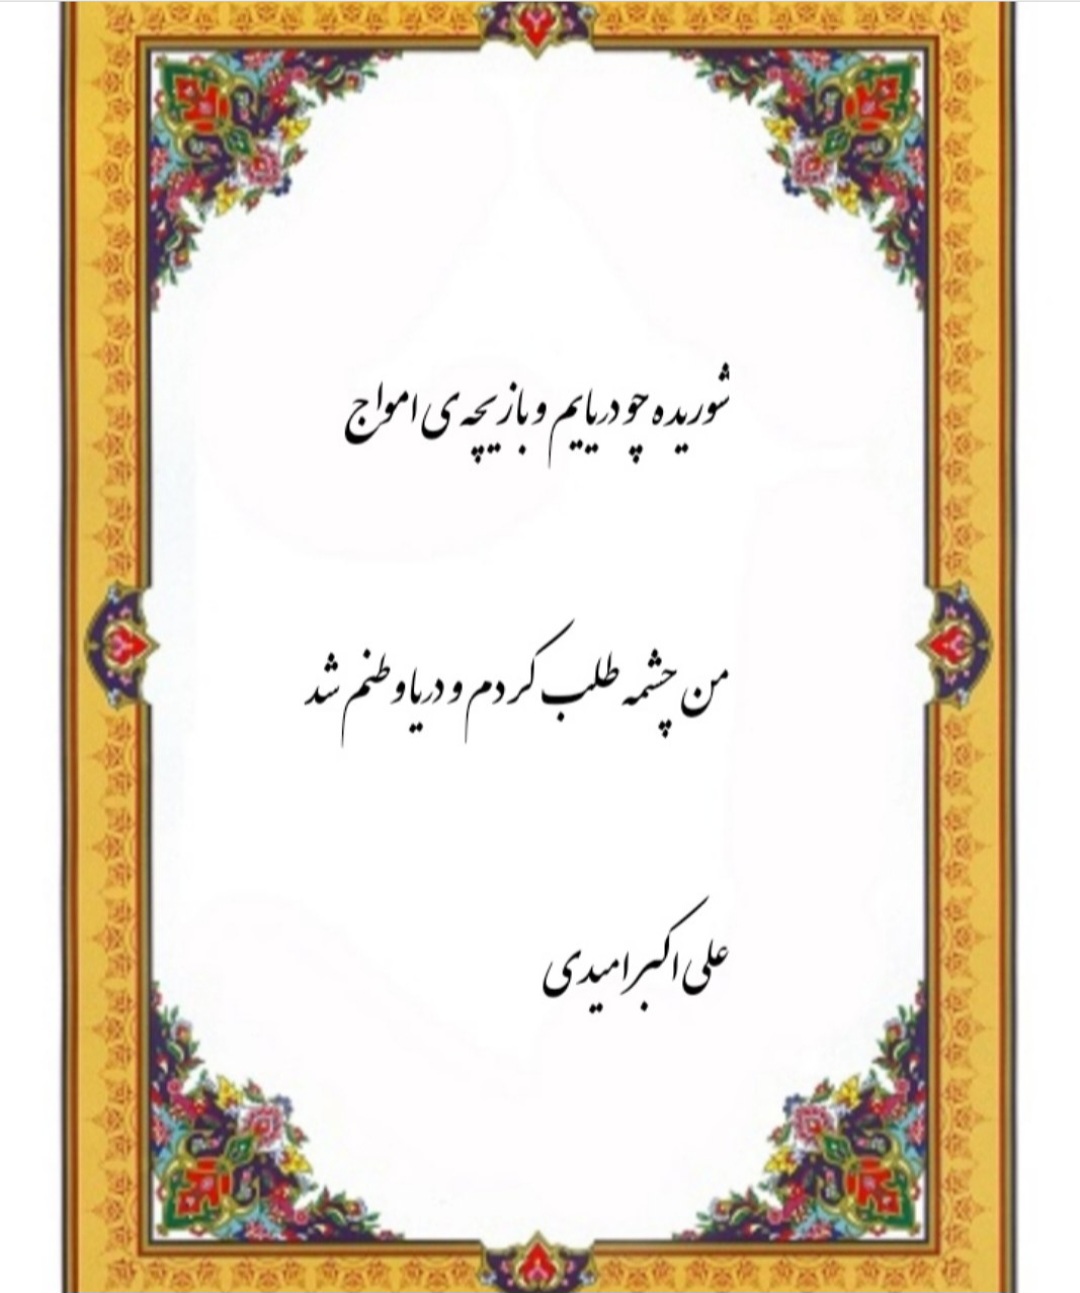 شوریده چو دریایم و بازیچه ی امواج
من چشمه طلب کردم و دریا وطنم شد
علی اکبر امیدی